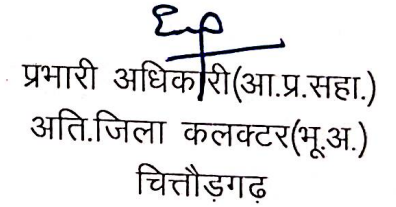 प्रभारी अधिकारी(आ.प्र.सहा.)
अति.जिला कलक्टर(भू.अ.)
चित्तौड़गढ़